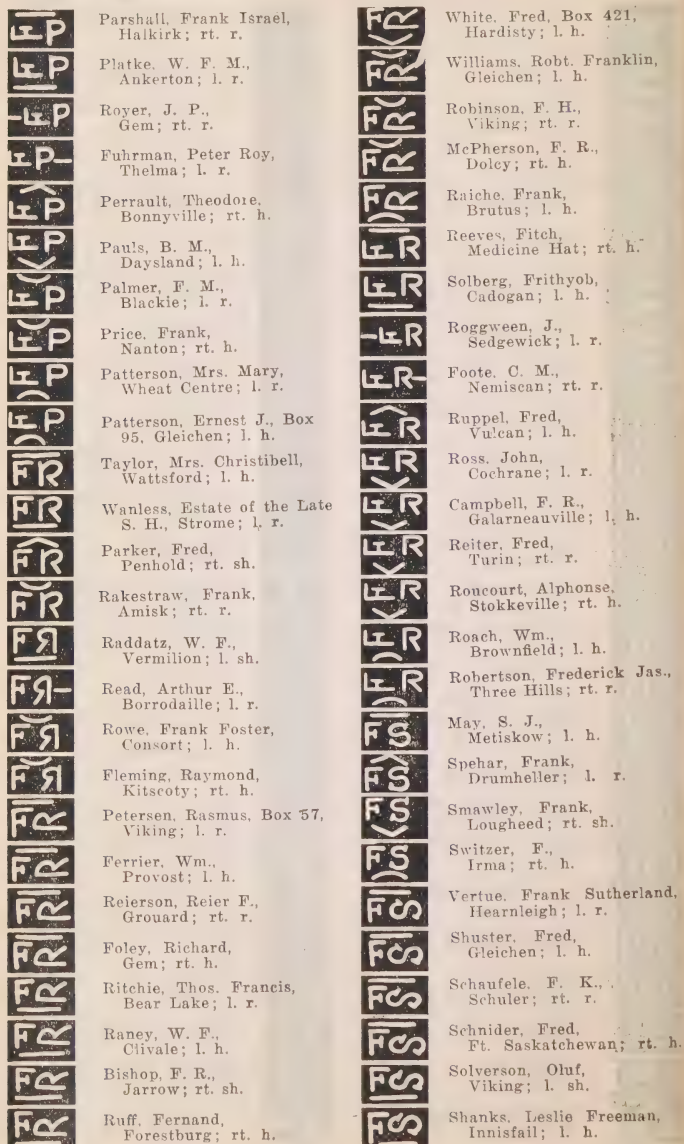 Parshall, Frank Israel,
Halkirk; rt. r.
Platke, W. F. M.,
Ankerton; l. r.
Royer, J. P.,
Gem; rt. r.
Fuhrman, Peter Roy,
Thelma; l. r.
Perrault, Theodore,
Bonnyville; rt. h.
Pauls, B. M.,
Daysland; l. h.
Palmer, F. M.,
Blackie; l. r.
Price, Frank,
Nanton; rt. h.
Patterson, Mrs. Mary,
Wheat Centre; l. r.
Patterson, Ernest J., Box
95, Gleichen; l. h.
Taylor, Mrs. Christibell,
Wattsford; l. h.
Wanless, Estate of the Late
S. H., Strome; l. r.
Parker, Fred,
Penhold; rt. sh.
Rakestraw, Frank,
Amisk; rt. r.
Raddatz, W. F.,
Vermilion; l. sh.
Read, Arthur E.,
Borrodaille; l. r.
Rowe, Frank Foster,
Consort; l. h.
Fleming, Raymond,
Kitscoty; rt. h.
Petersen, Rasmus, Box 57,
Viking; l. r.
Ferrier, Wm.,
Provost; l. h.
Reierson, Reier F.,
Grouard; rt. r.
Foley, Richard,
Gem; rt. h.
Ritchie, Thos. Francis,
Bear Lake; l. r.
Raney, W. F.,
Clivale; l. h.
Bishop, F. R.,
Jarrow; rt. sh.
Ruff, Fernand,
Forestburg; rt. h.
White, Fred, Box 421,
Hardisty; l. h.
Williams, Robt. Franklin,
Gleichen; l. h.
Robinson, F. H.,
Viking; rt. r.
McPherson, F. R.,
Dolcy; rt. h.
Raiche, Frank,
Brutus; l. h.
Reeves, Fitch,
Medicine Hat; rt. h.
Solberg, Frithyob,
Cadogan; l. h.
Roggween, J.,
Sedgewick; l. r.
Foote, C. M.,
Nemiscan; rt. r.
Ruppel, Fred,
Vulcan; l. h.
Ross, John,
Cochrane; l. r.
Campbell, F. R.,
Galarneauville; l. h.
Reiter, Fred,
Turin; rt. r.
Roucourt, Alphonse,
Stokkeville; rt. h.
Roach, Wm.,
Brownfield; l. h.
Robertson, Frederick Jas.,
Three Hills; rt. r.
May, S. J.,
Metiskow; l. h.
Spehar, Frank,
Drumheller; l. r.
Smawley, Frank,
Lougheed; rt. sh.
Switzer, F.,
Irma; rt. h.
Vertue, Frank Sutherland,
Hearnleigh; l. r.
Shuster, Fred,
Gleichen; l. h.
Schaufele, F. K.,
Schuler; rt. r.
Schnider, Fred,
Ft. Saskatchewan; rt. h.
Solverson, Oluf,
Viking; l. sh.
Shanks, Leslie Freeman,
Innisfail; l. h.